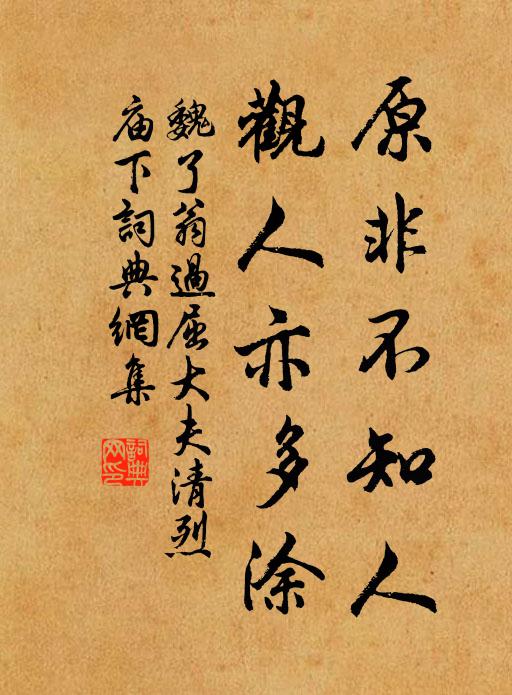 原非不知人
觀人亦多涂
魏了翁過屈大夫清烈
庙下詞典網集
詞典網印